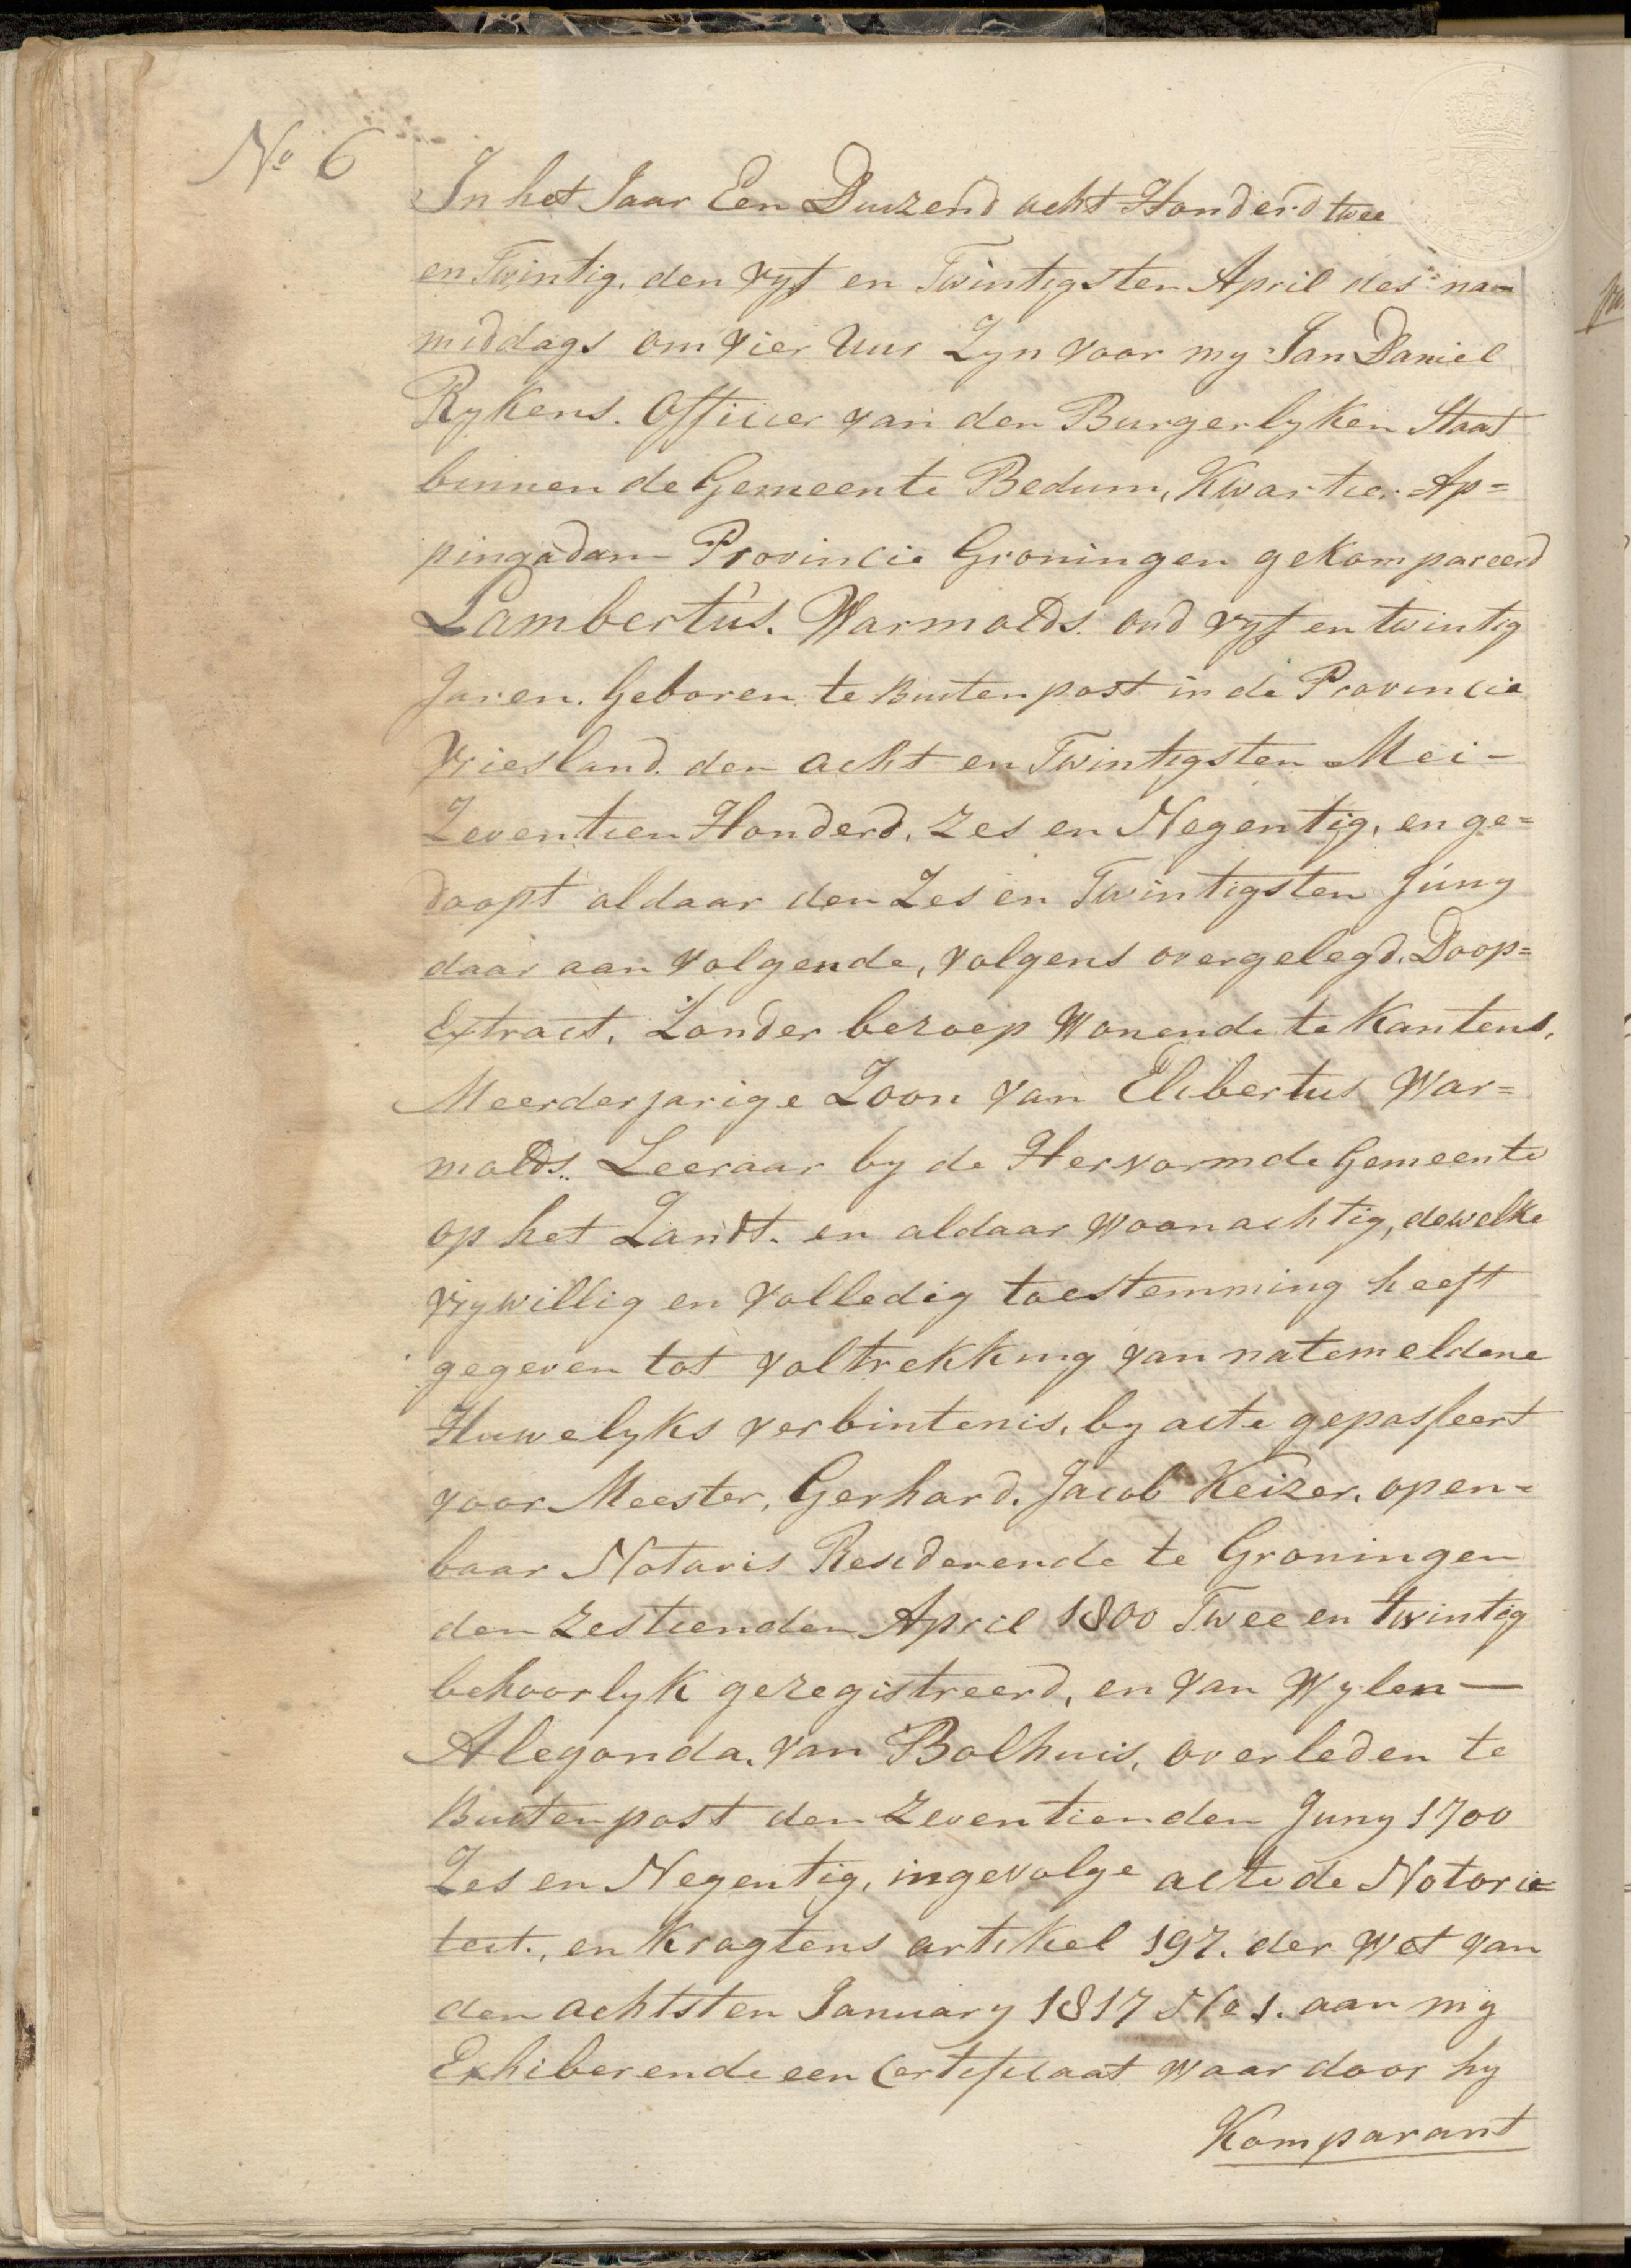 No 6
In het Jaar Een Duizend acht Honderd twee
en Twintig, den vyf en Twintigsten April des na-
middags om vier Uur Zyn voor my Jan Daniel
Rykens. Officier van den Burgerlyken Staat
binnen de Gemeente Bedum, Kwartier Ap=
pingadam Provincie Groningen gekompareerd
Lambertus. Warmolds. oud vyf en twintig
Jaren. Geboren te Buitenpost in de Provincie
Vriesland. den acht en Twintigsten Mei -
Zeventien Honderd, zes en Negentig, en ge=
doopt aldaar den Zes en Twintigsten Juny
daar aan volgende, volgens overgelegd. Doop=
Extract, Zonder beroep Wonende te Kantens,
Meerderjarige Zoon van Elibertus War=
molds.. Leeraar by de Hervormde Gemeente
op het Zandt. en aldaar woonachtig, dewelke
vrywillig en volledig toestemming heeft
gegeven tot voltrekking van natemeldene
Huwelyks verbintenis, by acte gepasseert
voor Meester, Gerhard. Jacob Keizer, open=
baar Notaris Resederende te Groningen
den zestienden April 1800 Twee en twintig
behoorlyk geregistreerd, en van Wylen —
Alegonda. van Bolhuis, overleden te
Buitenpost den zeventienden Juny 1700
Zes en Negentig, ingevolge acte de Notorie=
teit., en Kragtens artikel 197. der Wet van
den achtsten January 1817 No 1. aan my
Exhiberende een Certificaat waar door hy
Komparant